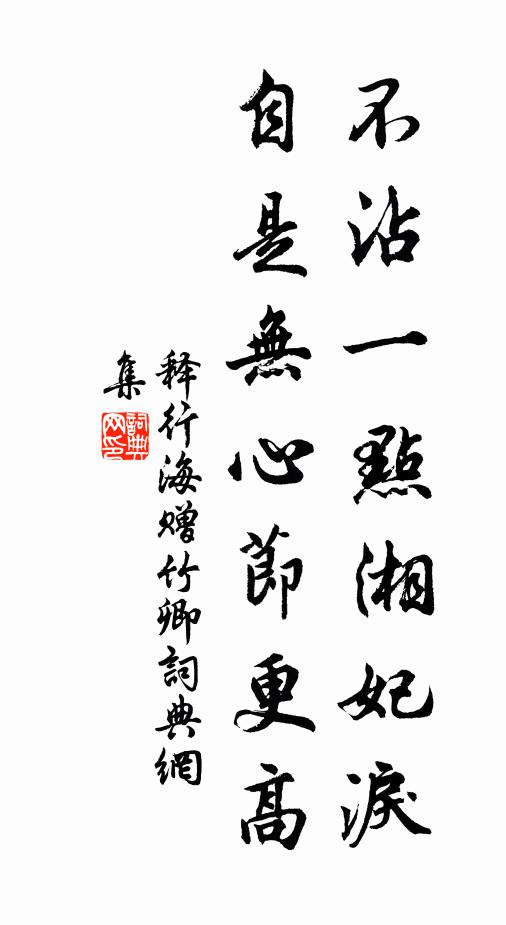 不沾一點湘妃淚
自是無心節更高
释行海赠竹卿詞典網
集
詞典
网印